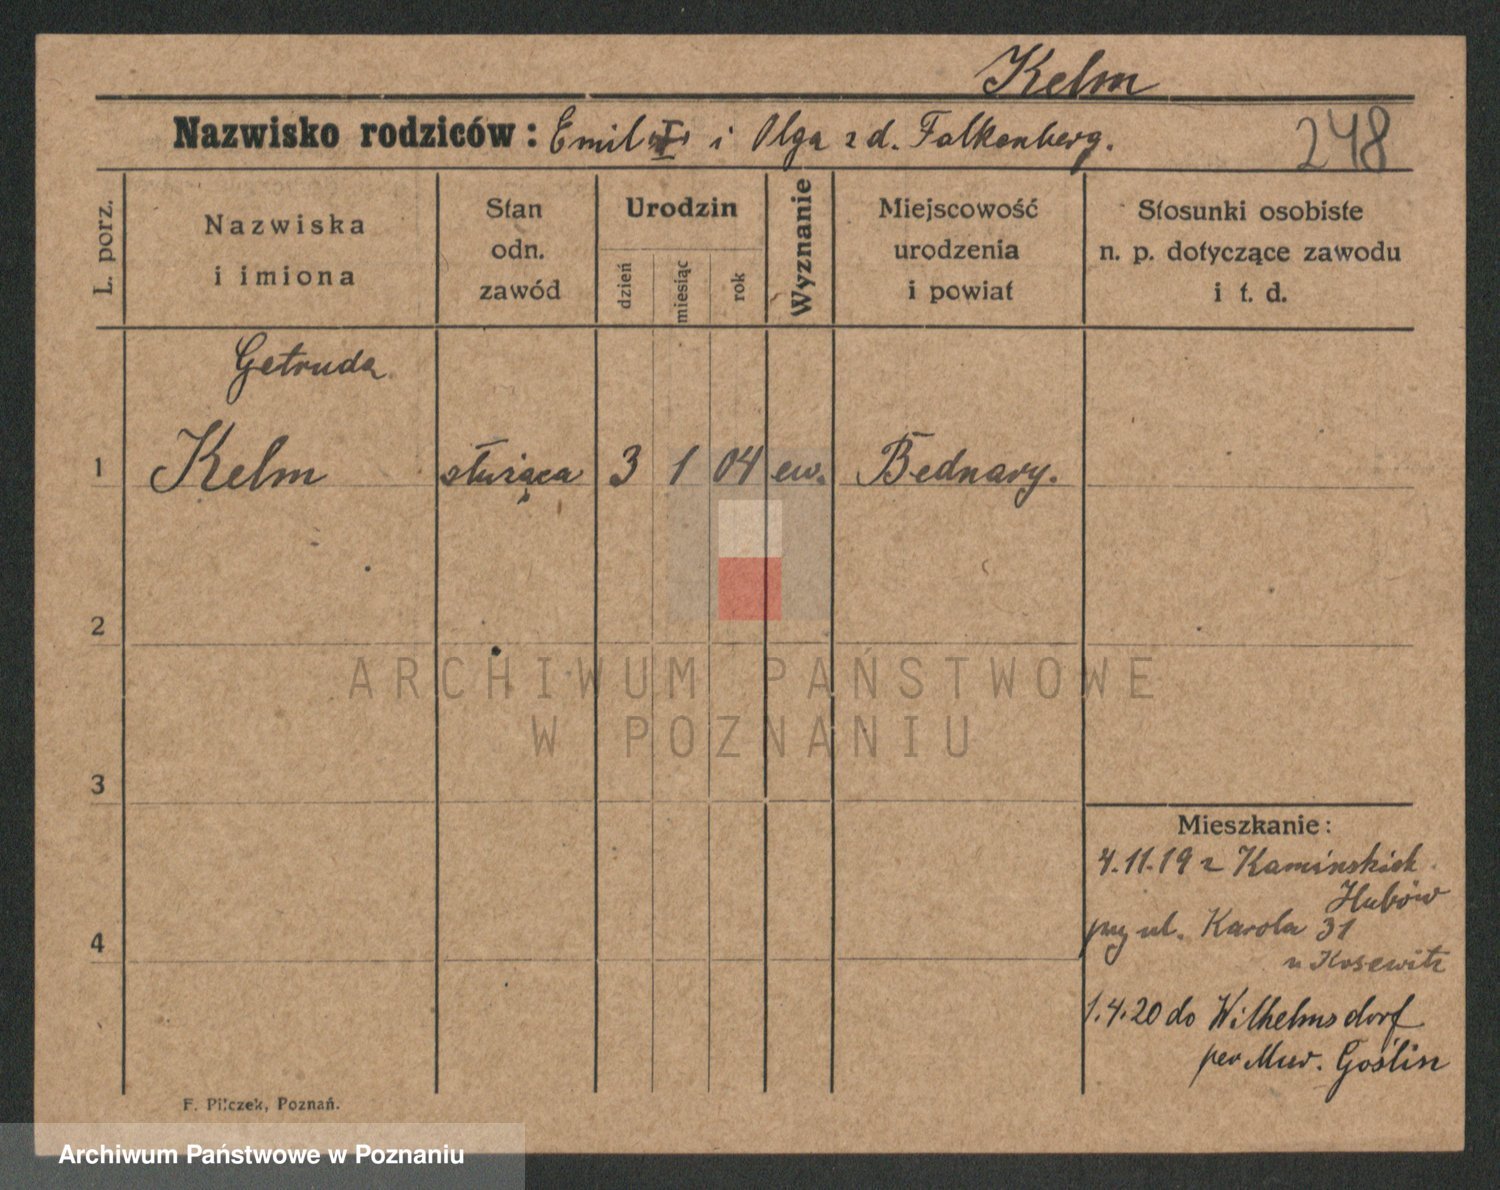 Kelm
Nazwisko rodziców: Emil i Olga z d. Falkenberg.
248
L. porz.
Nazwiska
i imiona
Stan
odn.
zawód
Urodzin
dzień
miesiąc
rok
Wyznanie
Miejscowość
urodzenia
i powiat
Stosunki osobiste
n. p. dotyczące zawodu
i t. d.
Getruda
1 Kelm służąca 3 1 04 ew. Bednary.
2
ARCHIWUM PAŃSTWOWE
W POZNANIU
3
Mieszkanie:
4.11.19 z Kamińskich
Hubów
przy ul. Karola 31
u Kosewitz
4
1.4.20 do Wilhelmsdorf
per Mur. Goślin
F. Pilczek, Poznań.
Archiwum Państwowe w Poznaniu